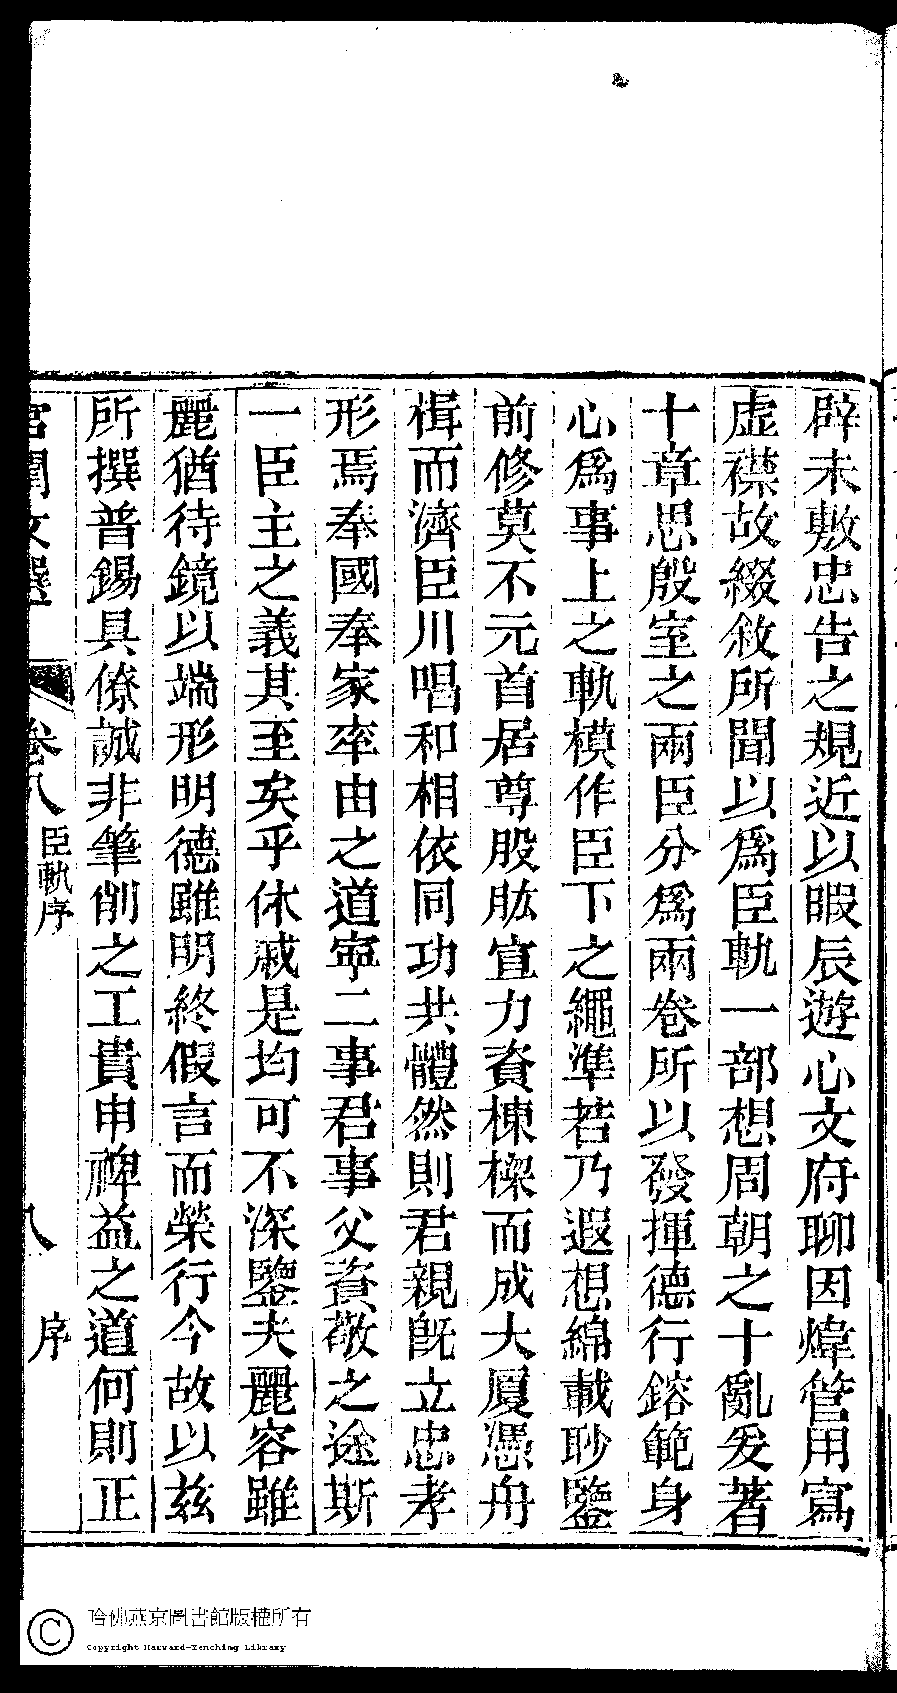 辟未敷忠告之規近以暇辰遊心文府聊因煒管用寫
虛襟故綴敘所聞以爲臣軌一部想周朝之十亂爰著
十章思殷室之兩臣分爲兩卷所以發揮德行鎔範身
心爲事上之軌模作臣下之繩準若乃遐想綿載眇鑒
前修莫不元首居尊股肱宣力資棟樑而成大厦憑舟
楫而濟臣川唱和相依同功共體然則君親旣立忠孝
形焉奉國奉家率由之道寧二事君事父資敬之途斯
一臣主之義其至矣乎休戚是均可不深鑒夫麗容雖
麗猶待鏡以端形明德雖明終假言而榮行今故以兹
所撰普錫具僚誠非筆削之工貴申裨益之道何則正
宮闈文選 卷八 臣軌序 八 序
哈佛燕京圖書館版權所有
Copyright Harvard-Yenching Library